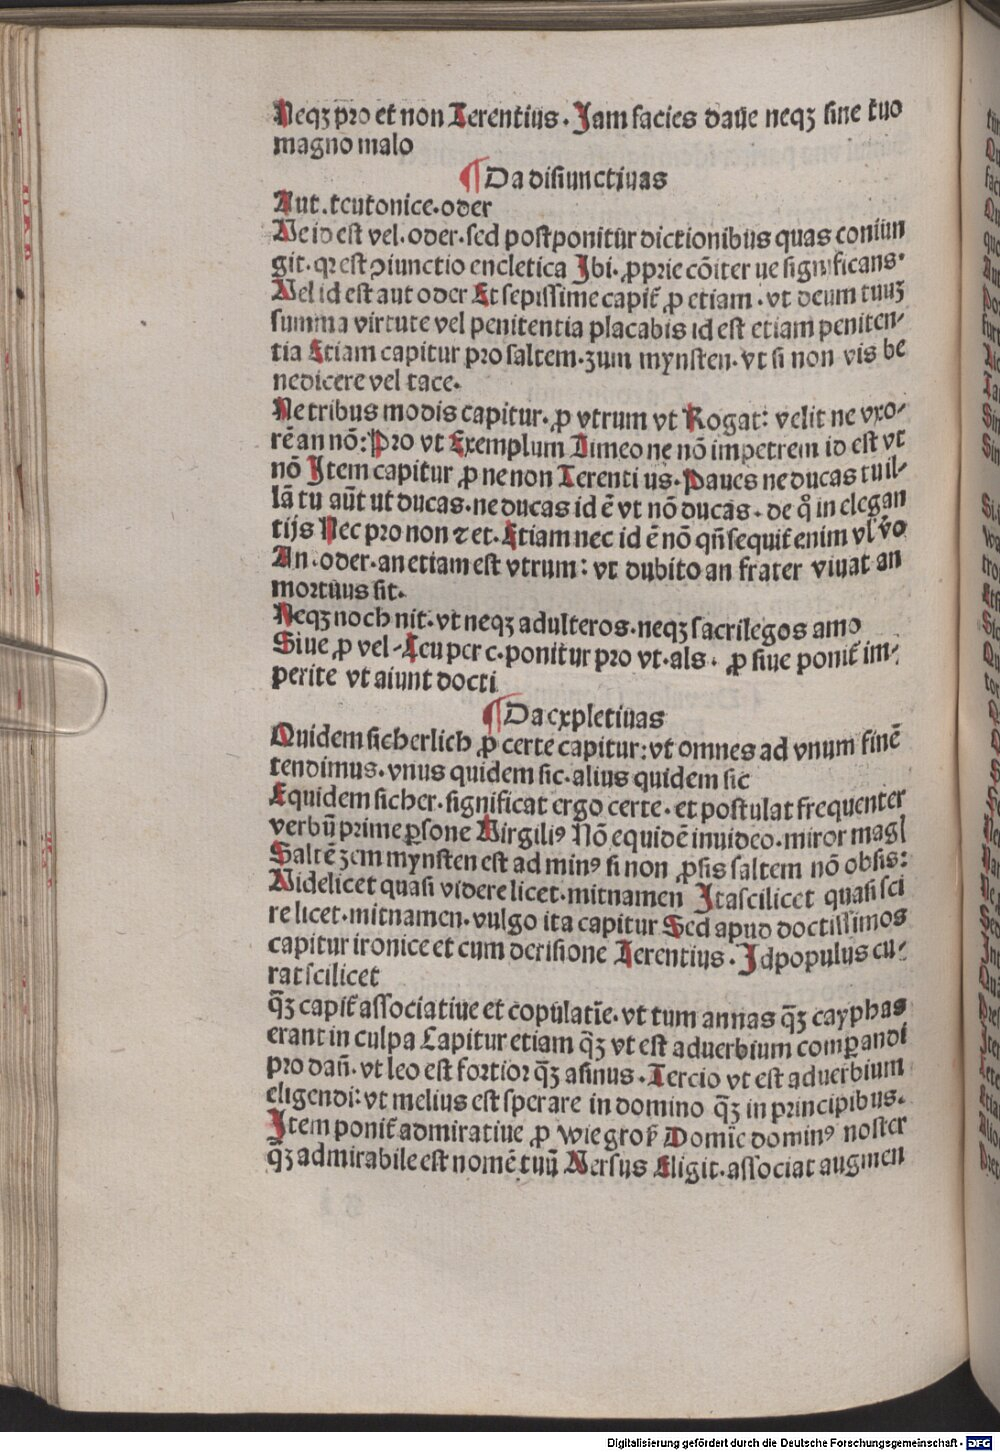 Neqꝫ pro et non Terentius. Jam facies daue neqꝫ sine tuo
magno malo
¶ Da disiunctiuas
Aut. teutonice. oder
Ue id est vel. oder. sed postponitur dictionibus quas coniun
git. qꝛ est ꝯiunctio encletica Jbi. ꝓprie cõiter ue significans.
Uel id est aut oder Et sepissime capit̃ ꝓ etiam. vt deum tuuꝫ
summa virtute vel penitentia placabis id est etiam peniten-
tia Etiam capitur pro saltem. zum mynsten. vt si non vis be
nedicere vel tace.
Ne tribus modis capitur. ꝓ vtrum vt Rogat: velit ne vxo-
rẽ an nõ: Pro vt Exemplum Timeo ne nõ impetrem id est vt
nõ Jtem capitur ꝓ ne non Terenti us. Paues ne ducas tu il-
lã tu aũt ut ducas. ne ducas id ẽ vt nõ ducas. de q̊ in elegan
tijs Nec pro non ⁊ et. Etiam nec id ẽ nõ qñ sequit̃ enim vl̓ v̊o
An. oder. an etiam est vtrum: vt dubito an frater viuat an
mortuus sit.
Neqꝫ noch nit. vt neqꝫ adulteros. neqꝫ sacrilegos amo
Siue ꝓ vel. Ceu per c. ponitur pro vt. als. ꝓ siue ponit̃ im-
perite vt aiunt docti
¶ Da expletiuas
Quidem sicherlich ꝓ certe capitur: vt omnes ad vnum finẽ
tendimus. vnus quidem sic. alius quidem sic
Equidem sicher. significat ergo certe. et postulat frequenter
verbũ prime ꝑsone Uirgiliꝰ Nõ equidẽ inuideo. miror magl
Saltẽ zem mynsten est ad minꝰ si non ꝓsis saltem nõ obsis:
Uidelicet quasi videre licet. mitnamen Jta scilicet quasi sci
re licet. mitnamen. vulgo ita capitur Sed apud doctissimos
capitur ironice et cum derisione Terentius. Jd populus cu-
rat scilicet
q̃ꝫ capit̃ associatiue et copulatĩe. vt tum annas q̃ꝫ cayphas
erant in culpa Capitur etiam q̃ꝫ vt est aduerbium comꝑandi
pro dañ. vt leo est fortior q̃ꝫ asinus. Tercio vt est aduerbium
eligendi: vt melius est sperare in domino q̃ꝫ in principibus.
Jtem ponit̃ admiratiue ꝓ wie groß Domĩe dominꝰ noster
q̃ꝫ admirabile est nomẽ tuũ Uersus Eligit. associat augmen
Digitalisierung gefördert durch die Deutsche Forschungsgemeinschaft - DFG